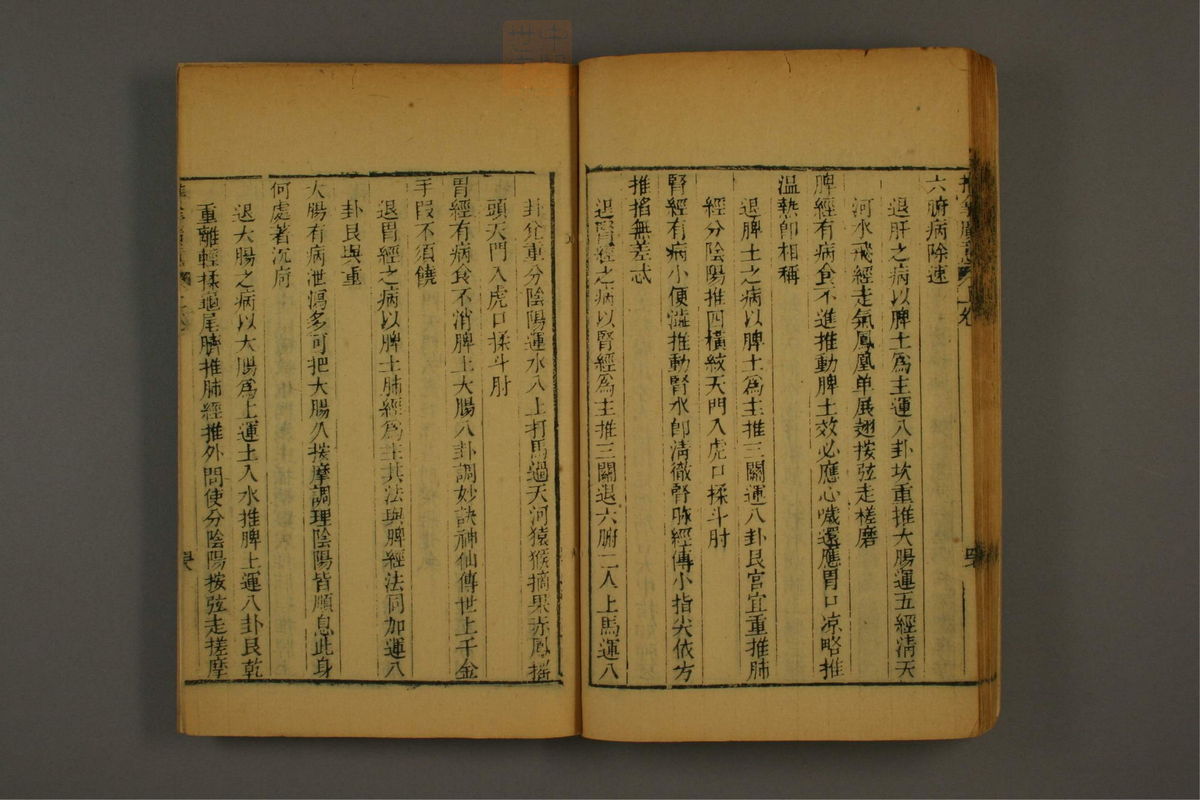 六腑病除速
退肝之病以脾土爲主運八卦坎重推大腸運五經淸天
河水飛經走氣鳳凰单展翅按弦走槎磨
脾經有病食不進推動脾土效必應心噦還應胃口凉略推
温熱卽相稱
退脾土之病以脾土爲主推三關運八卦艮宮宜重推肺
經分陰陽推四橫紋天門入虎口揉斗肘
腎經有病小便澁推動腎水卽淸徹腎脉經傳小指尖依方
推掐無差忒
退腎經之病以腎經爲主推三關退六腑二人上馬運八
卦兊重分陰陽運水入土打馬過天河猿猴摘果赤鳳搖
頭天門入虎口揉斗肘
胃經有病食不消脾土大腸八卦調妙訣神仙傳世上千金
手叚不須饒
退胃經之病以脾土肺經爲主其法與脾經法同加運八
卦艮與重
大腸有病泄瀉多可把大腸久按摩調理陰陽皆順息此身
何處著沉疴
退大腸之病以大腸爲主運土入水推脾土運八卦艮乾
重離輕揉龜尾臍推肺經推外間使分陰陽按弦走搓摩